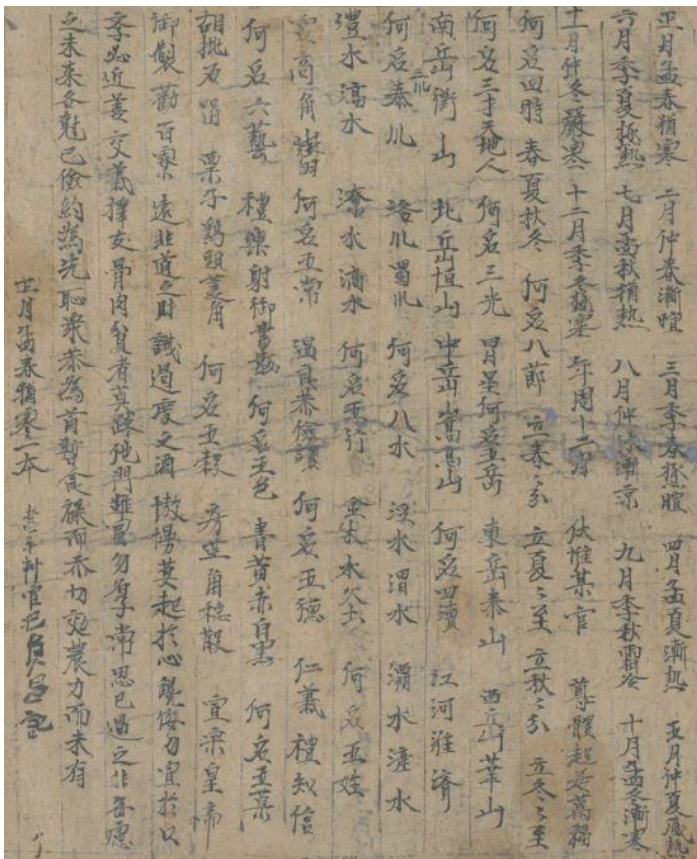 正月孟春猶寒 二月仲春漸暄 三月季春極暄 四月孟夏漸熱 五月仲夏盛熱
六月季夏極熱 七月孟秋猶熱 八月仲秋漸涼 九月季秋霜冷 十月孟冬漸寒
十一月仲冬嚴寒 十二月季冬極寒 年周十二月 伏惟某官 尊體起居萬福
何名四時 春夏秋冬 何名八節 立春〻分 立夏〻至 立秋〻分 立冬〻至
何名三才 天地人 何名三光 日月星 何名五岳 東岳泰山 西岳華山
南岳衡山 北岳恒山 中岳嵩高山 何名四瀆 江河淮濟
何名三川 秦川 洛川 蜀川 何名八水 涇水 渭水 灞水 滻水
澧水 滈水 潦水 潏水 何名五行 金木水火土 何名五姓
宮商角徵羽 何名五常 溫良恭儉讓 何名五德 仁義禮知信
何名六藝 禮樂射御書數 何名五色 青黃赤白黑 何名五菓
胡桃 栗子 鷄頭 菱角 何名五穀 角 宣宗皇帝
御製勸百寮 遠非道之財 誡過度之酒 莫起於心 勿宣於口
近善交義擇友 骨肉貧者莫踈 他門雖富勿 常思已過之非 每
之未來 各 已儉約為先 恭為首 食祿而 農力而未有
正月孟春猶寒一本 書記